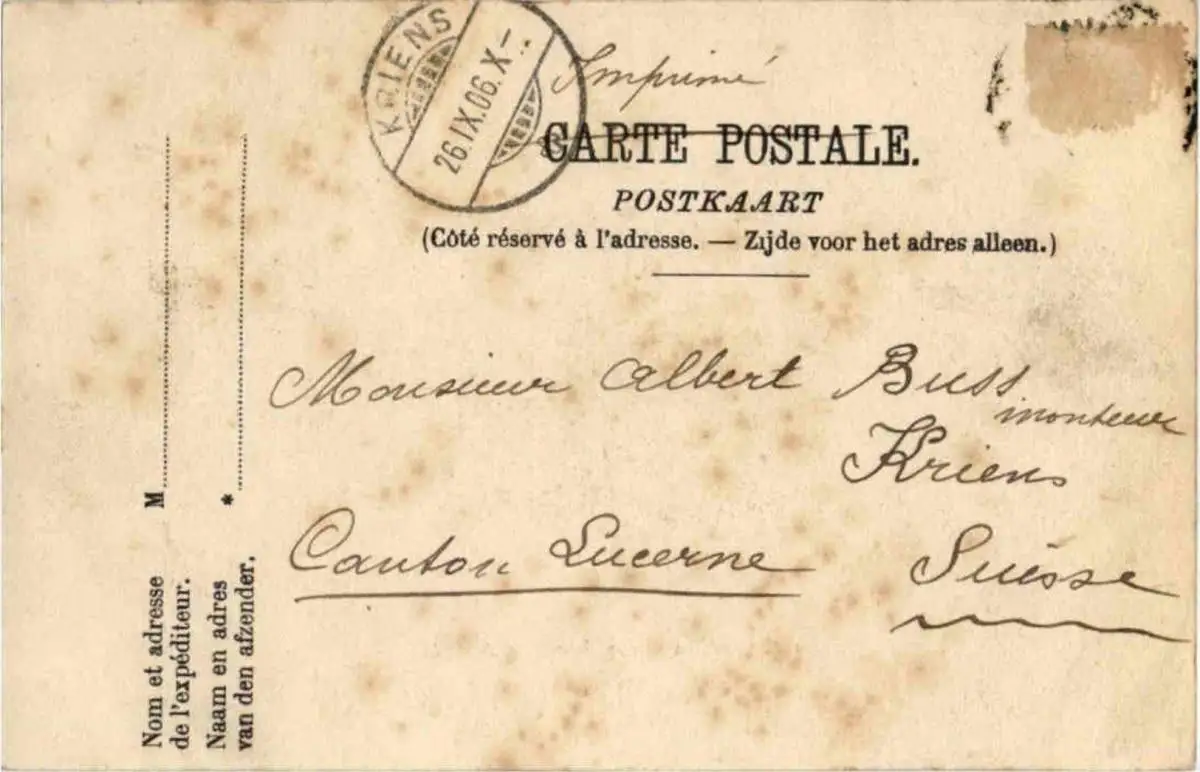 KRIENS
26.IX.06.X-
Imprimé
CARTE POSTALE.
POSTKAART
(Côté réservé à l'adresse. — Zijde voor het adres alleen.)
Monsieur Albert Buss
monteur
Kriens
Canton Lucerne Suisse
M
Nom et adresse
de l'expéditeur.
*
Naam en adres
van den afzender.